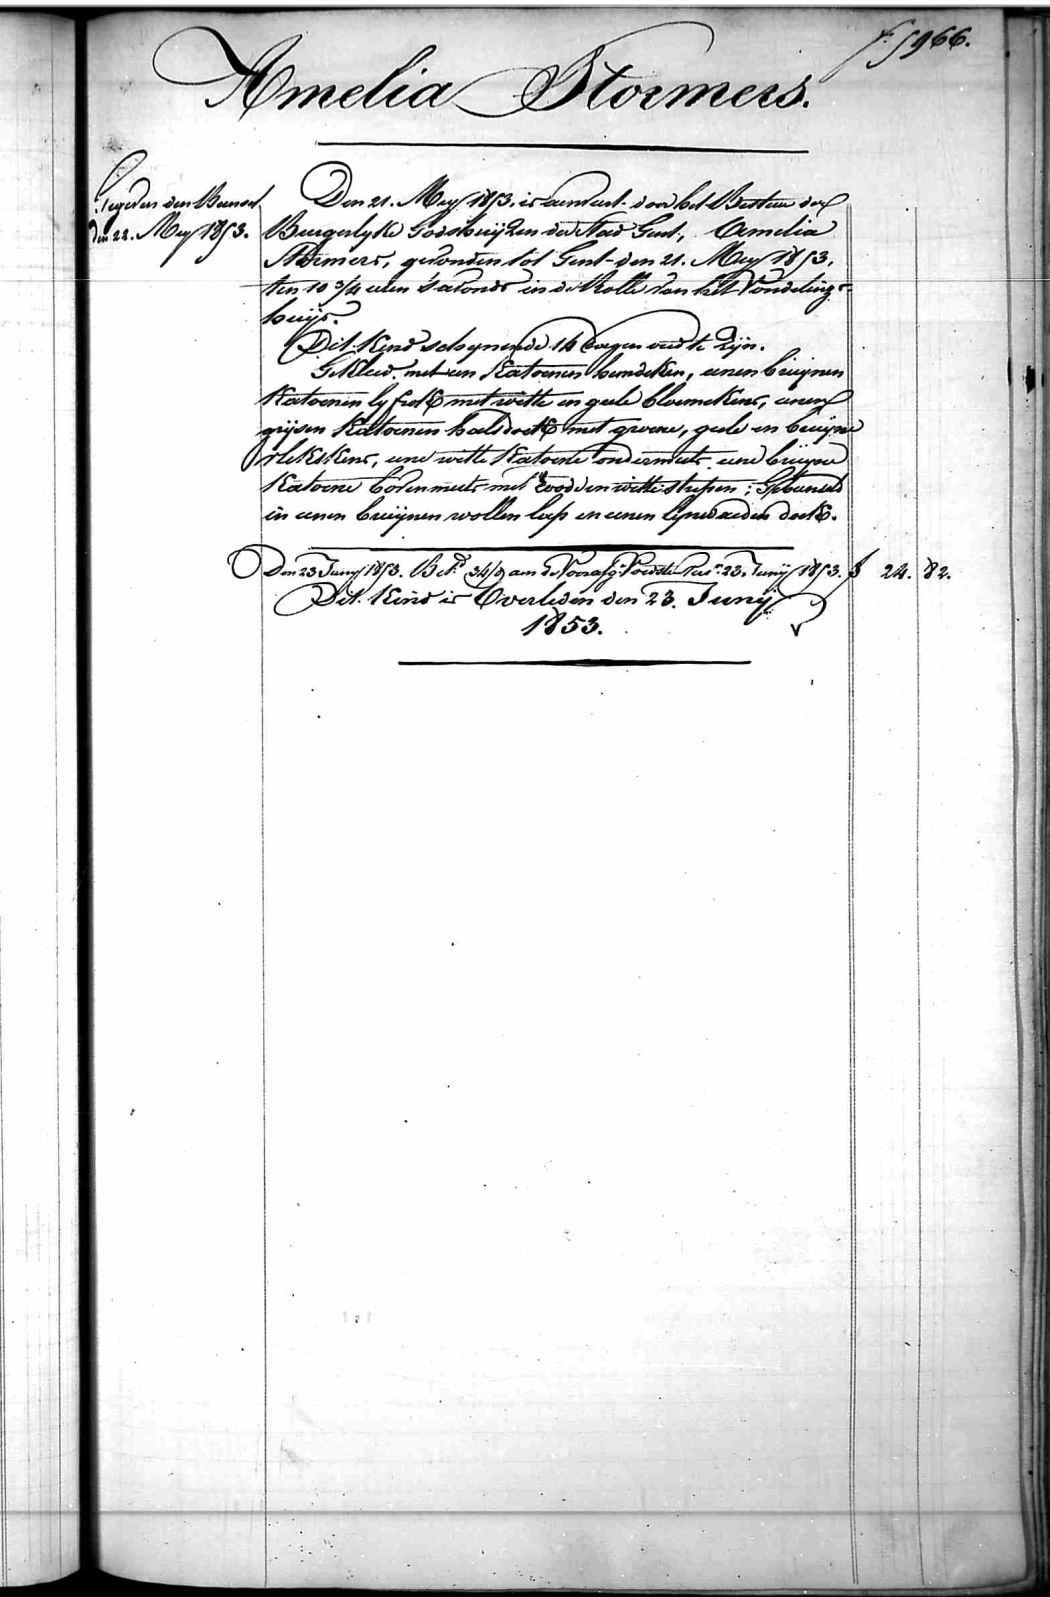 f.º 5966.
Amelia Stormers.
Gegeven den Barend
den 22. Mey 1853.
Den 21. Mey 1853. is aenveert door het Bestuer der
Burgerlyke Godshuijzen der Stad Gent, Amelia
Stormers, gevonden tot Gent den 21. Mey 1853.
ten 10 3/4 uren 's avonds in de Rolle van het Vondelings-
huijs.
Dit Kind schynende 14 dagen oud te Zijn.
Gekleed met een Katoenen hemdeken, eenen bruijnen
Katoenen lyfrok met witte en geele bloemekens, eenen
grijsen Katoenen halsdoek met groene, geele en bruijne
vlekskens, eene witte Katoene ondermuts eene bruijne
Katoene bovenmuts met rood en witte strepen; Gebunseld
in eenen bruijnen wollen lap en eenen lijnwaeden doek.
Den 23 Junij 1853. 34/9 aen de Voedster 23. Junij 1853. 24. 82.
Dit Kind is Overleden den 23. Junij
1853.